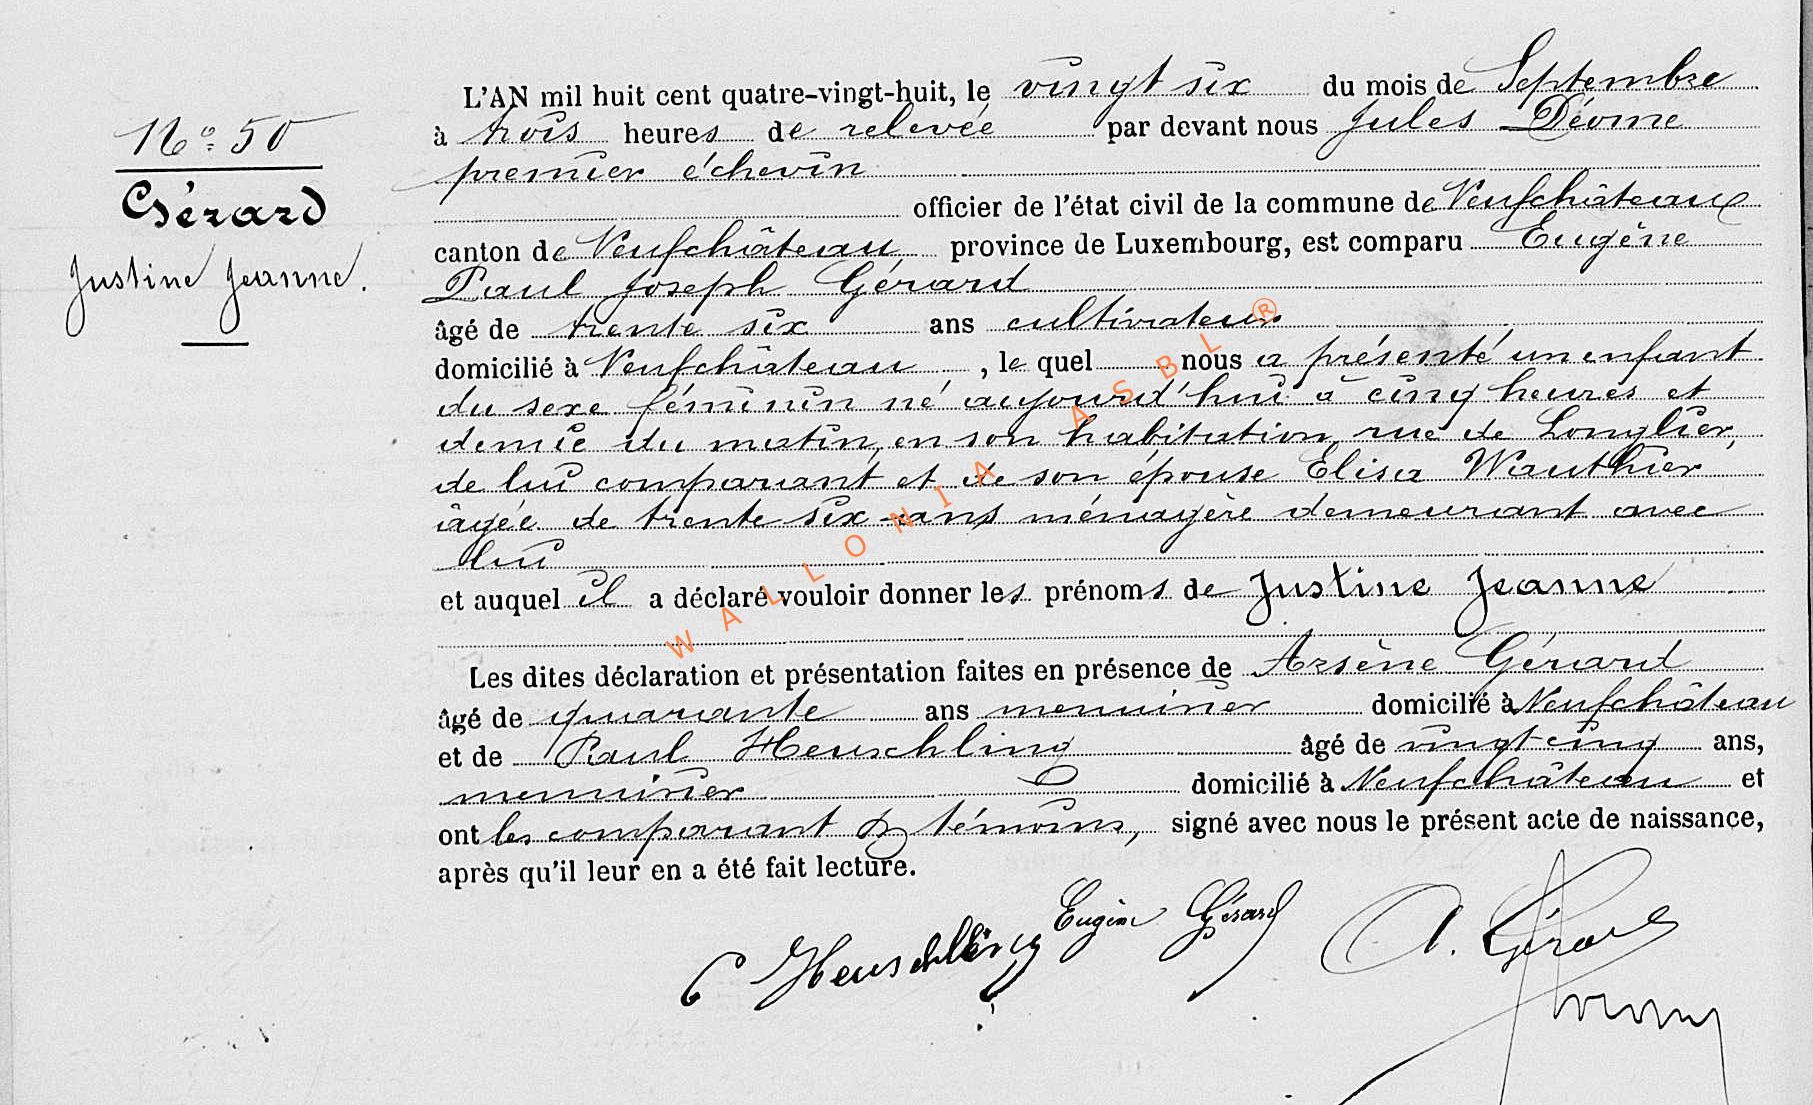 N° 50
Gérard
Justine Jeanne.
L'AN mil huit cent quatre-vingt-huit, le vingt six du mois de Septembre
à trois heures de relevée par devant nous Jules Déome
premier échevin
officier de l'état civil de la commune de Neufchâteau
canton de Neufchâteau province de Luxembourg, est comparu Eugène
Paul Joseph Gérard
âgé de trente six ans cultivateur
domicilié à Neufchâteau, le quel nous a présenté un enfant
du sexe féminin né aujourd'hui à cinq heures et
demie du matin, en son habitation, rue de Longlier,
de lui comparant et de son épouse Elisa Wauthier
âgée de trente six ans ménagère demeurant avec
lui
et auquel il a déclaré vouloir donner les prénoms de Justine Jeanne
Les dites déclaration et présentation faites en présence de Arsène Gérard
âgé de quarante ans menuisier domicilié à Neufchâteau
et de Paul Heuschling âgé de vingt-cinq ans,
menuisier domicilié à Neufchâteau et
ont les comparant & témoins, signé avec nous le présent acte de naissance,
après qu'il leur en a été fait lecture.
Heuschling Eugène Gérard A. Gérard
WALLONIA ASBL ®